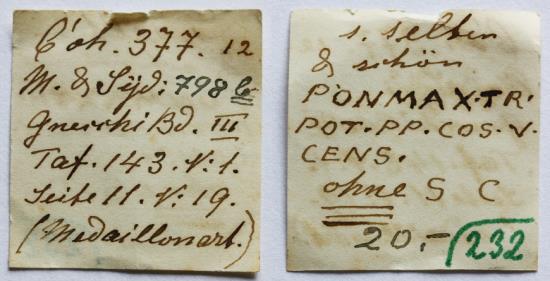 Coh. 377. 12
M. & Syd: 798 b
Gnecchi Bd. III
Taf. 143. N: 1.
Seite 11. N: 19.
(Medaillonart.)
s. selten
& schön
PONMAX·TR·
POT·PP·COS·V·
CENS.
ohne S C
20.- 232